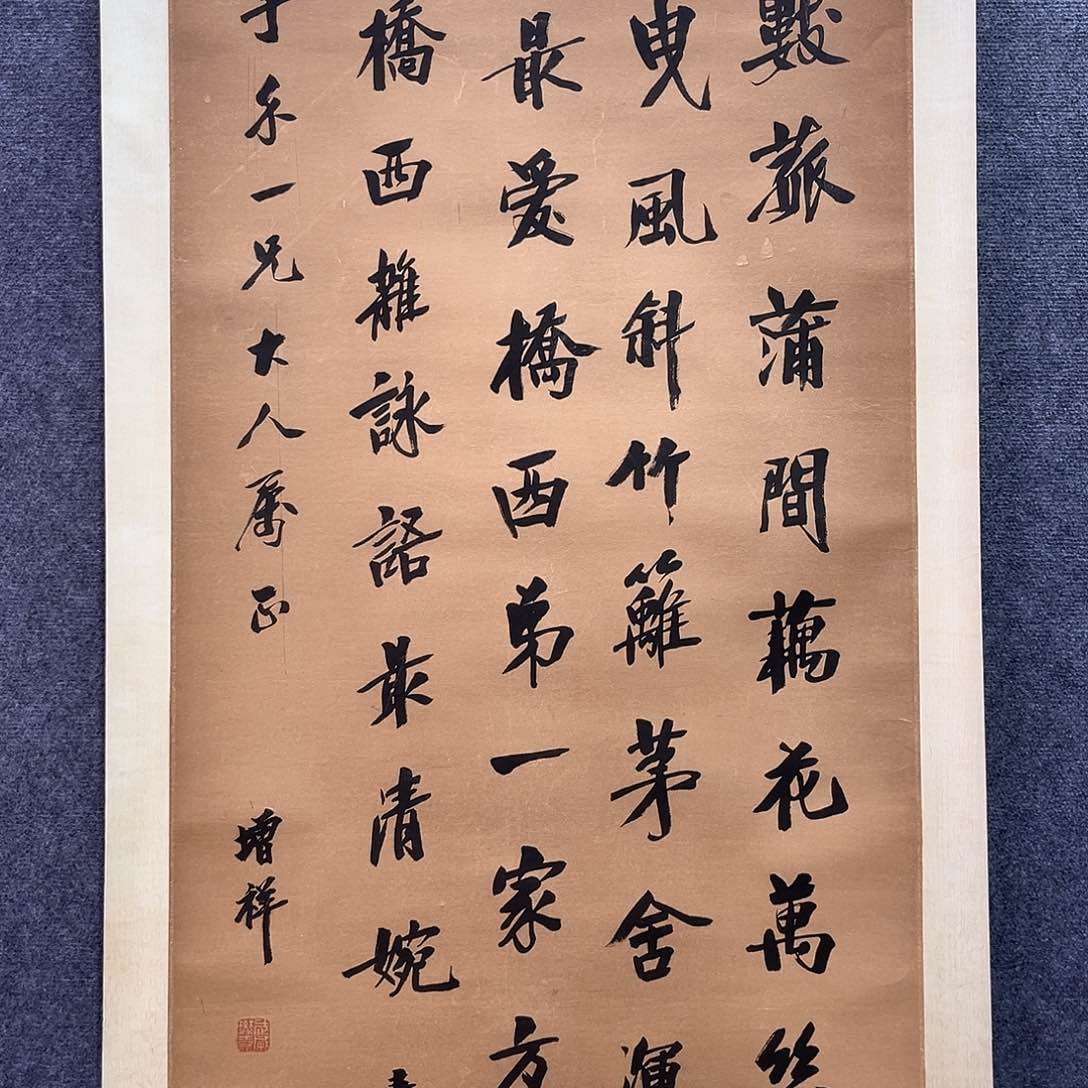 數菰蒲間藕花萬絲
曳風斜竹籬茅舍渾
最愛橋西弟一家方
橋西雜詠語最清婉
禾一兄大人属正
增祥